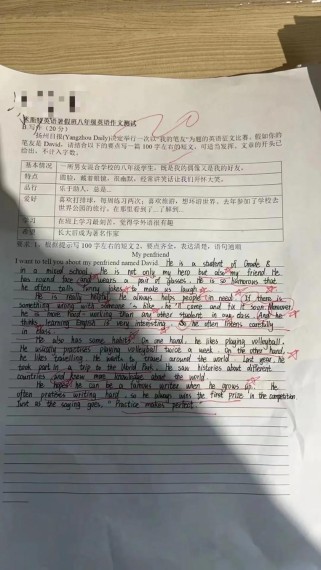 英语暑假班八年级英语作文测试
五.写作 (20分)
扬州日报(Yangzhou Daily)决定举行一次以"我的笔友"为题的英语征文比赛。假如你的
笔友是 David, 请结合以下的要点写一篇 100 字左右的短文, 可适当发挥。文章的开头已
给出, 不计入字数。
基本情况 一所男女混合学校的八年级学生, 既是我的偶像又是我的好友。
特点 圆脸, 戴着眼镜, 很幽默, 经常讲笑话让我们开怀大笑。
品行 乐于助人, 总是...
爱好 喜欢打排球, 每周练习两次; 喜欢旅游, 想环游世界。去年参加了学校去
世界公园的旅行, 在那里看到了...了解到...
学习 在班上学习最刻苦, 爱得学外语很有趣
希望 长大后成为著名作家
要求: 1. 根据提示写 100 字左右的短文 2. 要点齐全, 表达清楚, 语句通顺
My penfriend
I want to tell you about my penfriend named David. He is a student of Grade 8
in a mixed school. He is not only my hero but also my friend. He
has round face and wears a pair of glasses. He is so humorous that
he often tells funny jokes to make us laugh
He is really helpful. He always helps people in need. If there is
something wrong with someone's bike, he'll come and fix it soon. Moreover,
he is more hard-working than any other student in my class. And he
thinks learning English is very interesting. So he often listens carefully
in class.
He also has some habits. On one hand, he likes playing volleyball.
He usually practises playing volleyball twice a week. On the other hand,
he likes travelling. He wants to travel around the world. Last year, he
took part in a trip to the World Park. He saw histories about different
countries and knew more knowledge about the world.
He hopes he can be a famous writer when he grows up. He
often practises writing hard, so he always wins the first prize in the competition.
Just as the saying goes, "Practice makes perfect."